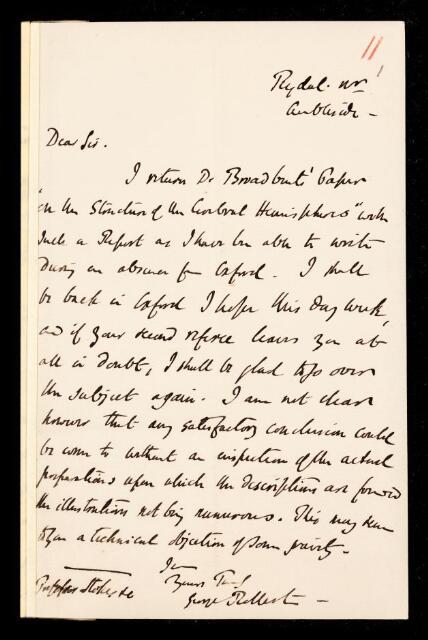 11
1
Rydal. nr
Ambleside -
Dear Sir.
I return Dr Broadbents' Paper
"on the Structure of the Cerebral Hemispheres" with
such a Report as I have been able to write
during an absence from Oxford. I shall
be back in Oxford I hope this day week,
and if your second referee leaves you at
all in doubt, I shall be glad to go over
the subject again. I am not clear
however that any satisfactory conclusion could
be come to without an inspection of the actual
preparations upon which the descriptions are founded
the illustrations not being numerous. This may seem
to you a technical objection of some gravity.
I am
Yours Truly
George Rolleston -
Professor Stokes &c